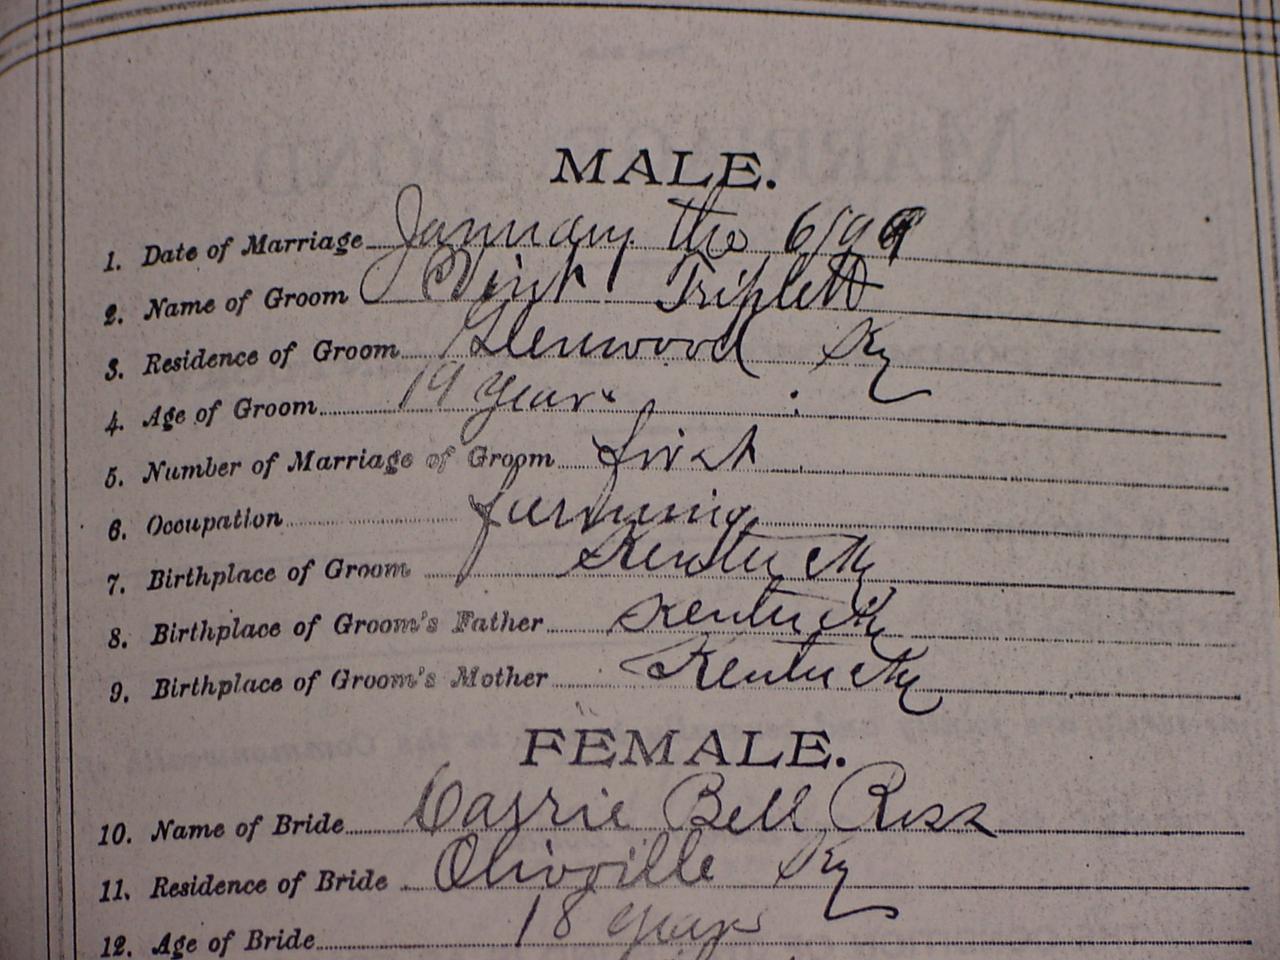 MARRIAGE BOND.
MALE.
1. Date of Marriage January the 6/99
2. Name of Groom Vint Triplett
3. Residence of Groom Glenwood Ky
4. Age of Groom 19 years
5. Number of Marriage of Groom first
6. Occupation farming
7. Birthplace of Groom Kentucky
8. Birthplace of Groom's Father Kentucky
9. Birthplace of Groom's Mother Kentucky
FEMALE.
10. Name of Bride Carrie Bell Ross
11. Residence of Bride Olivville Ky
12. Age of Bride 18 years